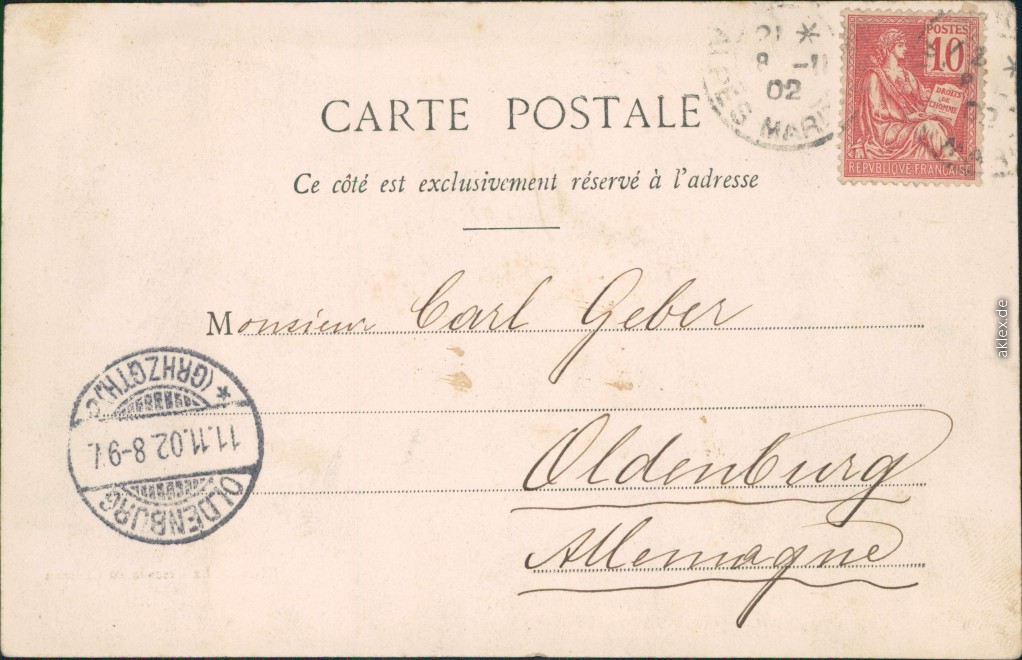 21 *
8 -11
02
ALPES MARI
POSTES
10
DROITS
DE
L'HOMME
REPVBLIQVE FRANÇAISE
CARTE POSTALE
Ce côté est exclusivement réservé à l'adresse
Monsieur Carl Geber
Oldenburg
Allemagne
OLDENBURG
11.11.02. 8-9 V.
* (GRHZGTH.)
aklex.de